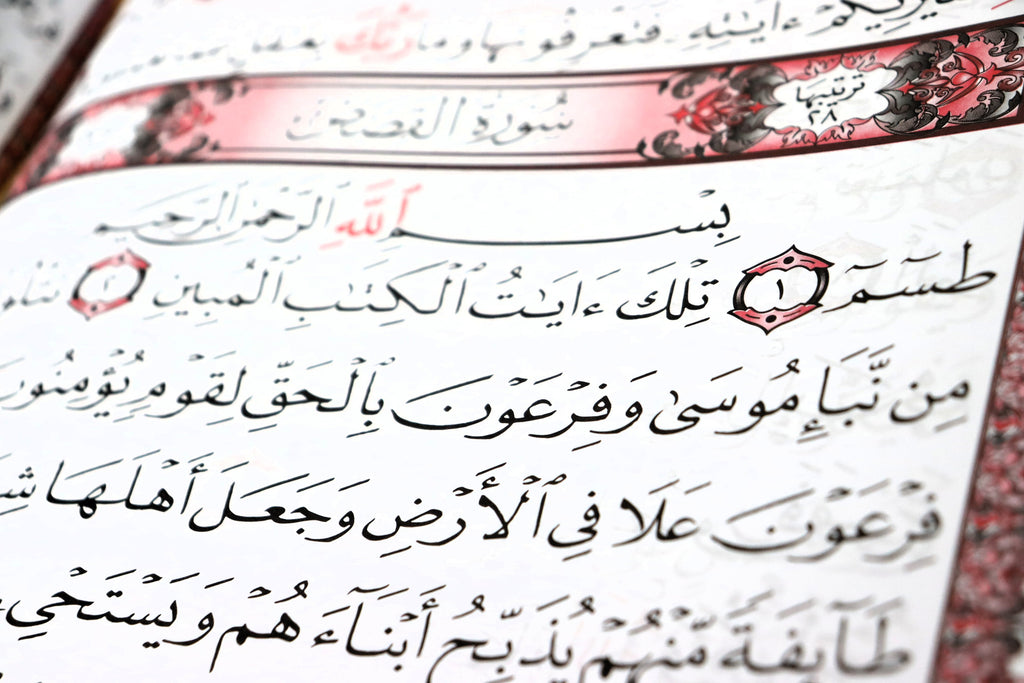 سَيُرِيكُمْ ءَايَـٰتِهِۦ فَتَعْرِفُونَهَا وَمَا رَبُّكَ بِغَـٰفِلٍ
سُورَةُ القَصَصِ
ترتيبها
٢٨
بِسْمِ ٱللَّهِ ٱلرَّحْمَـٰنِ ٱلرَّحِيمِ
طسٓمٓ ١ تِلْكَ ءَايَـٰتُ ٱلْكِتَـٰبِ ٱلْمُبِينِ ٢
مِن نَّبَإِ مُوسَىٰ وَفِرْعَوْنَ بِٱلْحَقِّ لِقَوْمٍ
فِرْعَوْنَ عَلَا فِى ٱلْأَرْضِ وَجَعَلَ أَهْلَهَا
طَآئِفَةً مِّنْهُمْ يُذَبِّحُ أَبْنَآءَهُمْ وَيَسْتَحْىِۦ